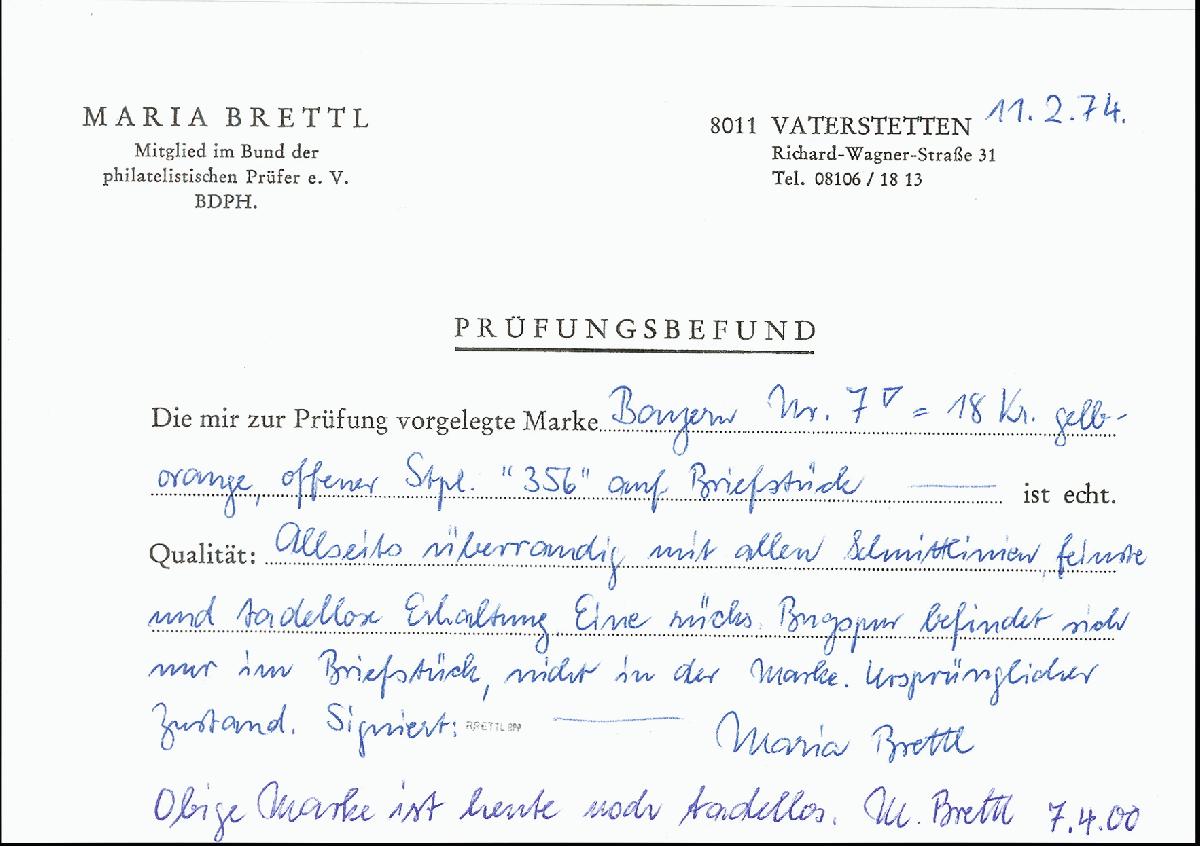 MARIA BRETTL
Mitglied im Bund der
philatelistischen Prüfer e. V.
BDPH.
8011 VATERSTETTEN 11.2.74.
Richard-Wagner-Straße 31
Tel. 08106 / 18 13
PRÜFUNGSBEFUND
Die mir zur Prüfung vorgelegte Marke Bayern Nr. 7 = 18 Kr. gelb-
orange, offener Stpl. "356" auf Briefstück — ist echt.
Qualität: Allseits überrandig mit allen Schnittlinien, feinste
und tadellose Erhaltung. Eine rücks. Bugspur befindet sich
nur im Briefstück, nicht in der Marke. Ursprünglicher
Zustand. Signiert: BRETTL — Maria Brettl
Obige Marke ist heute noch tadellos. M. Brettl 7.4.00